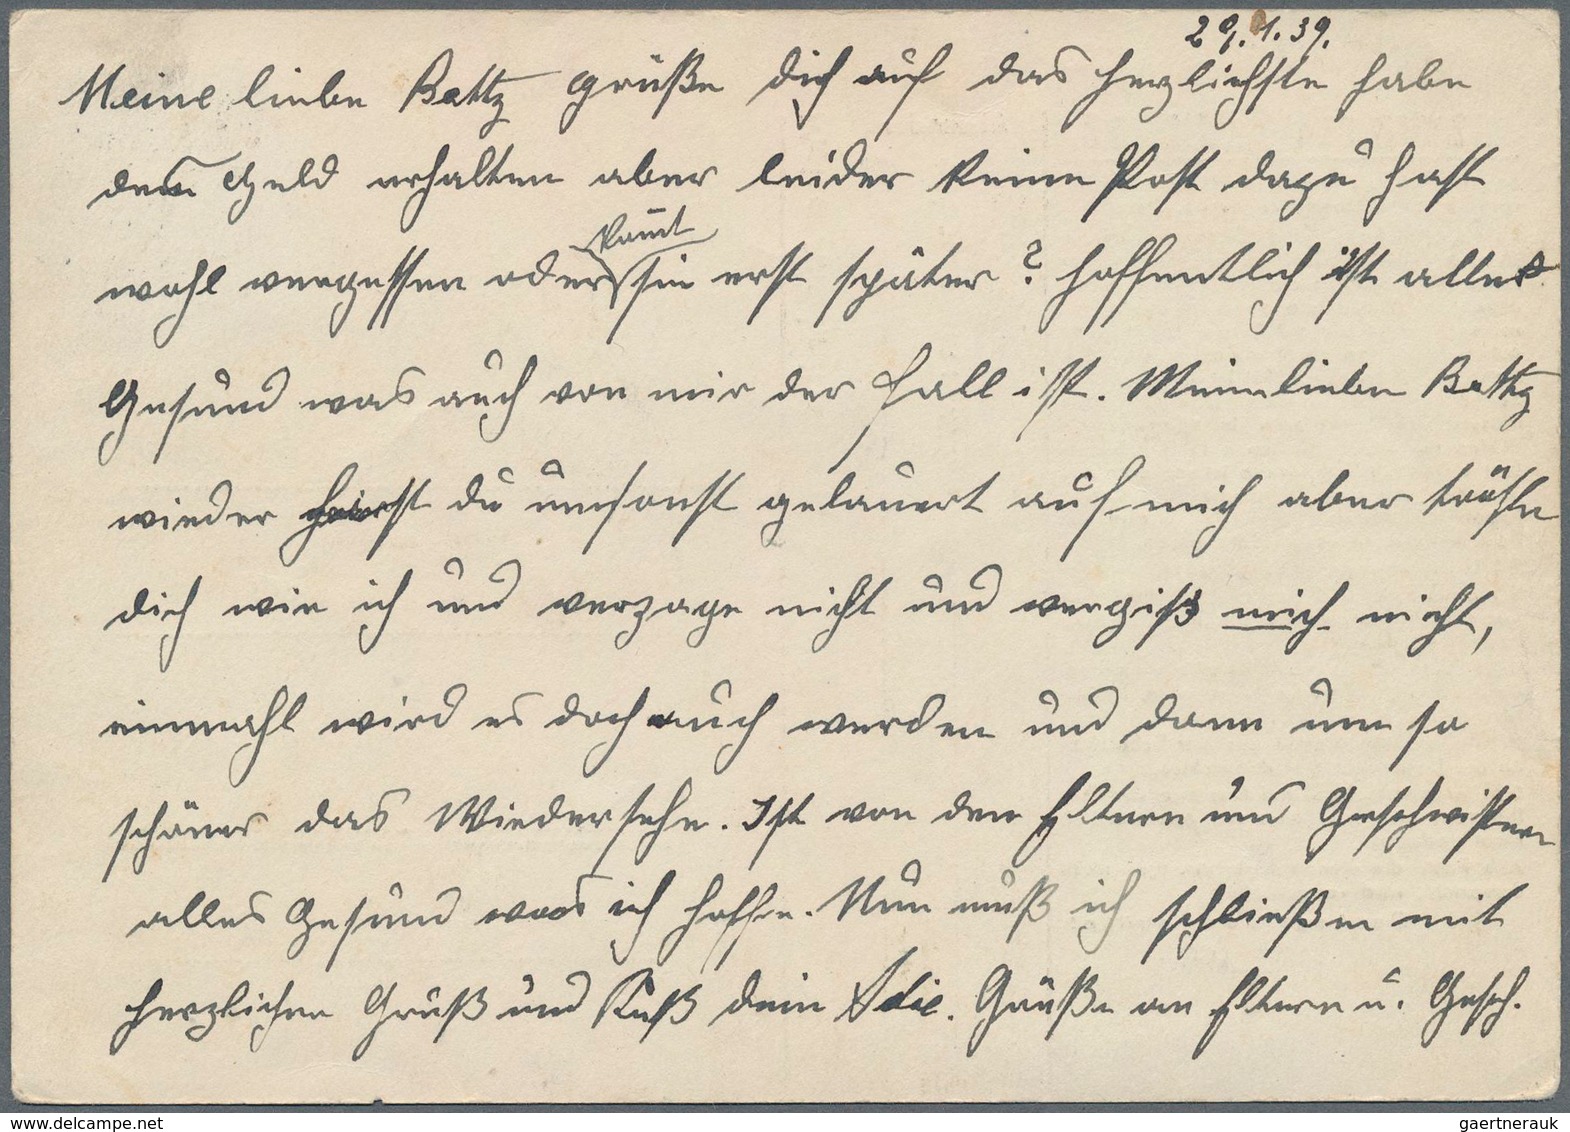 29.1.39.
Meine liebe Battz grüße dich auf das herzlichste habe
dein Geld erhalten aber leider keine Post dazu hast
komt
wohl vergessen oder sie erst später? hoffentlich ist alles
Gesund was auch von mir der Fall ist. Meine liebe Battz
wieder hast du umsonst gelauert auf mich aber tröste
dich wie ich und verzage nicht und vergiß mich nicht,
einmahl wird es doch auch werden und dann um so
schöner das Wiedersehn. Ist von den Eltern und Geschwistern
alles Gesund was ich hoffe. Nun muß ich schließen mit
herzlichen Gruß und Kuß dein Adie. Grüße an Eltern u. Gesch.
www.delcampe.net
gaertnerauk